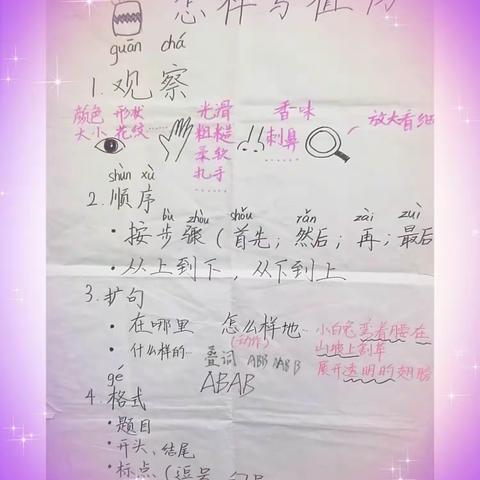 怎样写植物
guān chá
1. 观察
颜色 形状
大小 花纹……
光滑
粗糙
柔软
扎手
……
香味
刺鼻
放大看细
shùn xù
2. 顺序
bù zhòu shǒu rǎn zài zuì
·按步骤(首先;然后;再;最后
·从上到下,从下到上
3. 扩句
·在哪里 怎么样地
(动作)
·什么样的 叠词 ABB AABB
ABAB
小白兔弯着腰在
山坡上割草
展开透明的翅膀
gé
4. 格式
·题目
·开头、结尾
·标点(逗号 句号